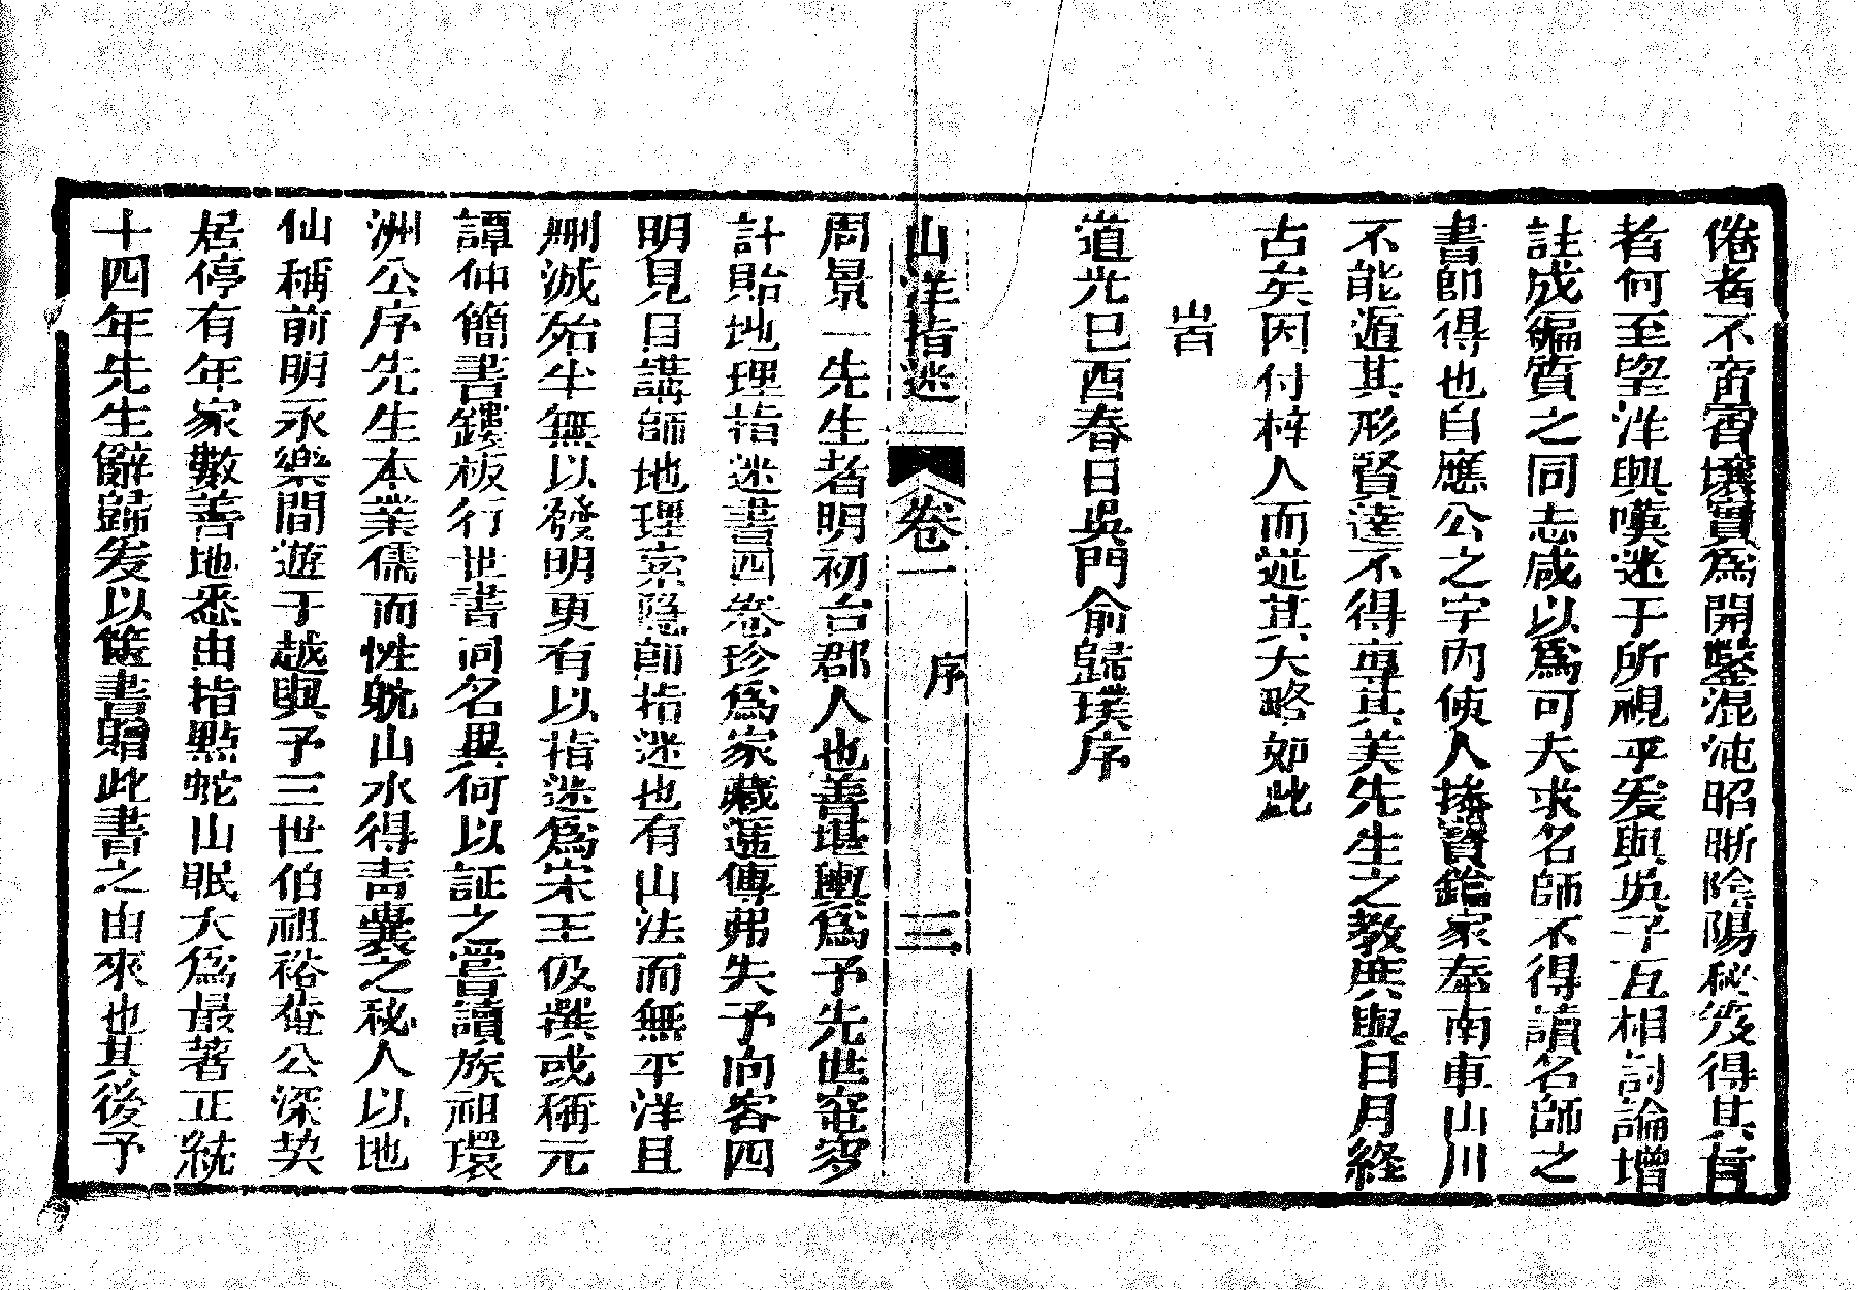 倦者不啻霄壤實為開鑿混沌昭晰陰陽秘笈得其肯
者何至望洋興嘆迷于所視乎爰與吳子互相討論增
註成編質之同志咸以為可夫求名師不得讀名師之
書即得也自應公之宇內使人搽賢鑰家奉南車山川
不能遁其形賢達不得專其美先生之教庶與日月終
古矣因付梓人而述其大略如此
峕
道光己酉春日吳門俞歸璞序
山洋指迷 卷一 序 三
周景一先生者明初台郡人也善堪輿為予先世窀穸
計貽地理指迷書四卷珍為家藏遞傳弗失予向客四
明見目講師地理索隱即指迷也有山法而無平洋且
刪滅殆半無以發明更有以指迷為宋王伋撰或稱元
譚仲簡書鏤板行世書同名異何以証之嘗讀族祖環
洲公序先生本業儒而性躭山水得青囊之秘人以地
仙稱前明永樂間遊于越與予三世伯祖裕菴公深契
居停有年家數善地悉由指點蛇山眠犬為最著正統
十四年先生辭歸爰以篋書贈此書之由來也其後予